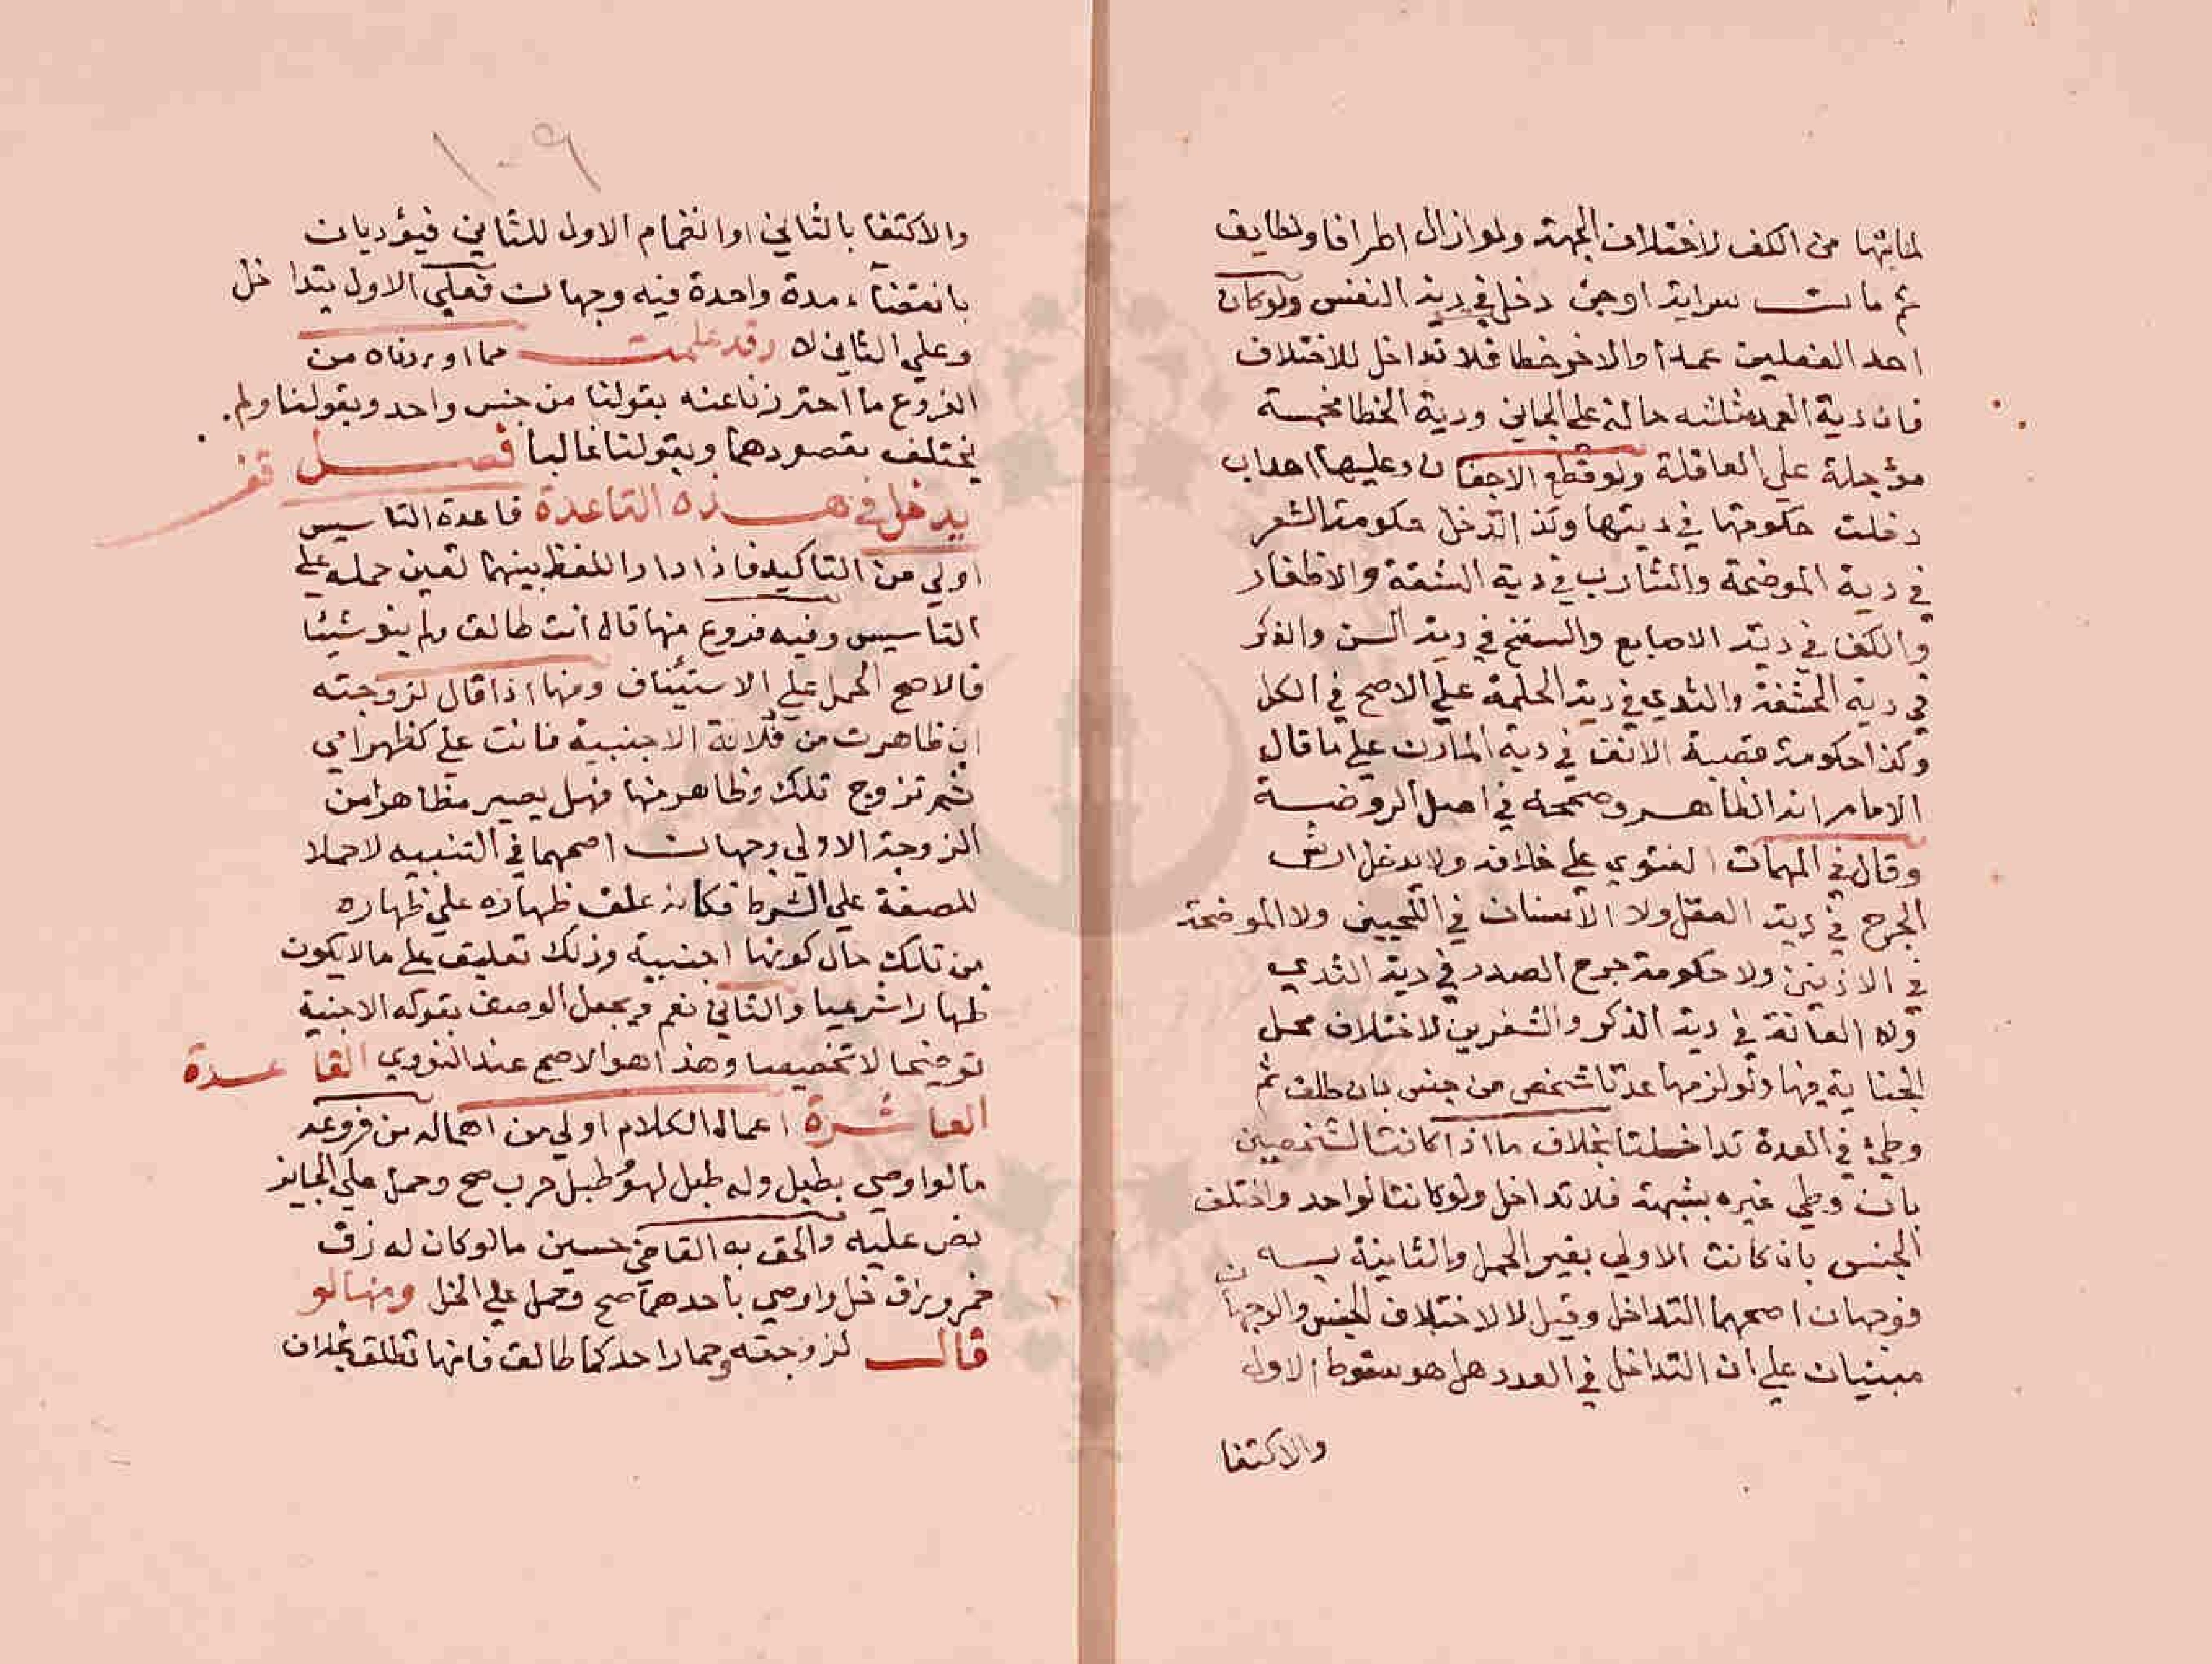 لمابثها من الكف لاختلاف الجهة ولو ازال اطرافا ولطايف
ثم مات سراية او جن دخل في دية النفس ولو كان
احد الفعلين عمدا والاخر خطا فلا تداخل للاختلاف
فان دية العمد مثلثه حالة علي الجاني ودية الخطا مخمسة
مؤجلة علي العاقلة ولو قطع الاجفان وعليها اهداب
دخلت حكومتها في ديتها وكذا تدخل حكومة الشعر
في دية الموضحة والشارب في دية الشفة والاظفار
والكف في دية الاصابع والسنخ في دية السن والذكر
في دية الحشفة والثدي في دية الحلمة علي الاصح في الكل
وكذا حكومة قصبة الانف في دية المارن علي ما قال
الامام انه الظاهر وصححه في اصل الروضة
وقال في المهمات الفتوي علي خلافه ولا يدخل ارش
الجرح في دية العقل ولا الاسنان في اللحيين ولا الموضحة
في الاذنين ولا حكومة جرح الصدر في دية الثدي
ولا العانة في دية الذكر والشفرين لاختلاف محل
الجناية فيها ولو لزمها عدتا شخص من جنس بان طلق ثم
وطئ في العدة تداخلتا بخلاف ما اذا كانتا لشخصين
بان وطي غيره بشبهة فلا تداخل ولو كانتا لواحد واختلف
الجنس بان كانت الاولي بغير الحمل والثانية به
فوجهان اصحهما التداخل وقيل لا لاختلاف الجنس والوجهان
مبنيان علي ان التداخل في العدد هل هو سقوط الاول
والاكتفا
١٠٩
والاكتفا بالثاني او انضمام الاول للثاني فيؤديان
بانقضاء مدة واحدة فيه وجهان فعلي الاول يتداخل
وعلي الثاني لا وقد علمت مما اوردناه من
الفروع ما احترزنا عنه بقولنا من جنس واحد وبقولنا ولم
يختلف مقصودهما وبقولنا غالبا فصل قف
يدخل في هذه القاعدة قاعدة التاسيس
اولي من التاكيد فاذا دار اللفظ بينهما تعين حمله علي
التاسيس وفيه فروع منها قال انت طالق ولم ينو شيئا
فالاصح الحمل علي الاستيناف ومنها اذا قال لزوجته
ان ظاهرت من فلانة الاجنبية فانت علي كظهر امي
ثم تزوج تلك وظاهر منها فهل يصير مظاهرا من
الزوجة الاولي وجهان اصحهما في التنبيه لا حملا
للصفة علي الشرط فكانه علق ظهاره علي ظهاره
من تلك حال كونها اجنبية وذلك تعليق علي ما لا يكون
ظهارا شرعيا والثاني نعم ويجعل الوصف بقوله الاجنبية
توضيحا لا تخصيصا وهذا هو الاصح عند النووي القاعدة
العاشرة اعمال الكلام اولي من اهماله من فروعه
ما لو اوصي بطبل وله طبل لهو وطبل حرب صح وحمل علي الجايز
نص عليه والحق به القاضي حسين ما لو كان له زق
خمر وزق خل واوصي باحدهما صح وحمل علي الخل ومنها لو
قال لزوجته وحمار احدكما طالق فانها تطلق بخلاف